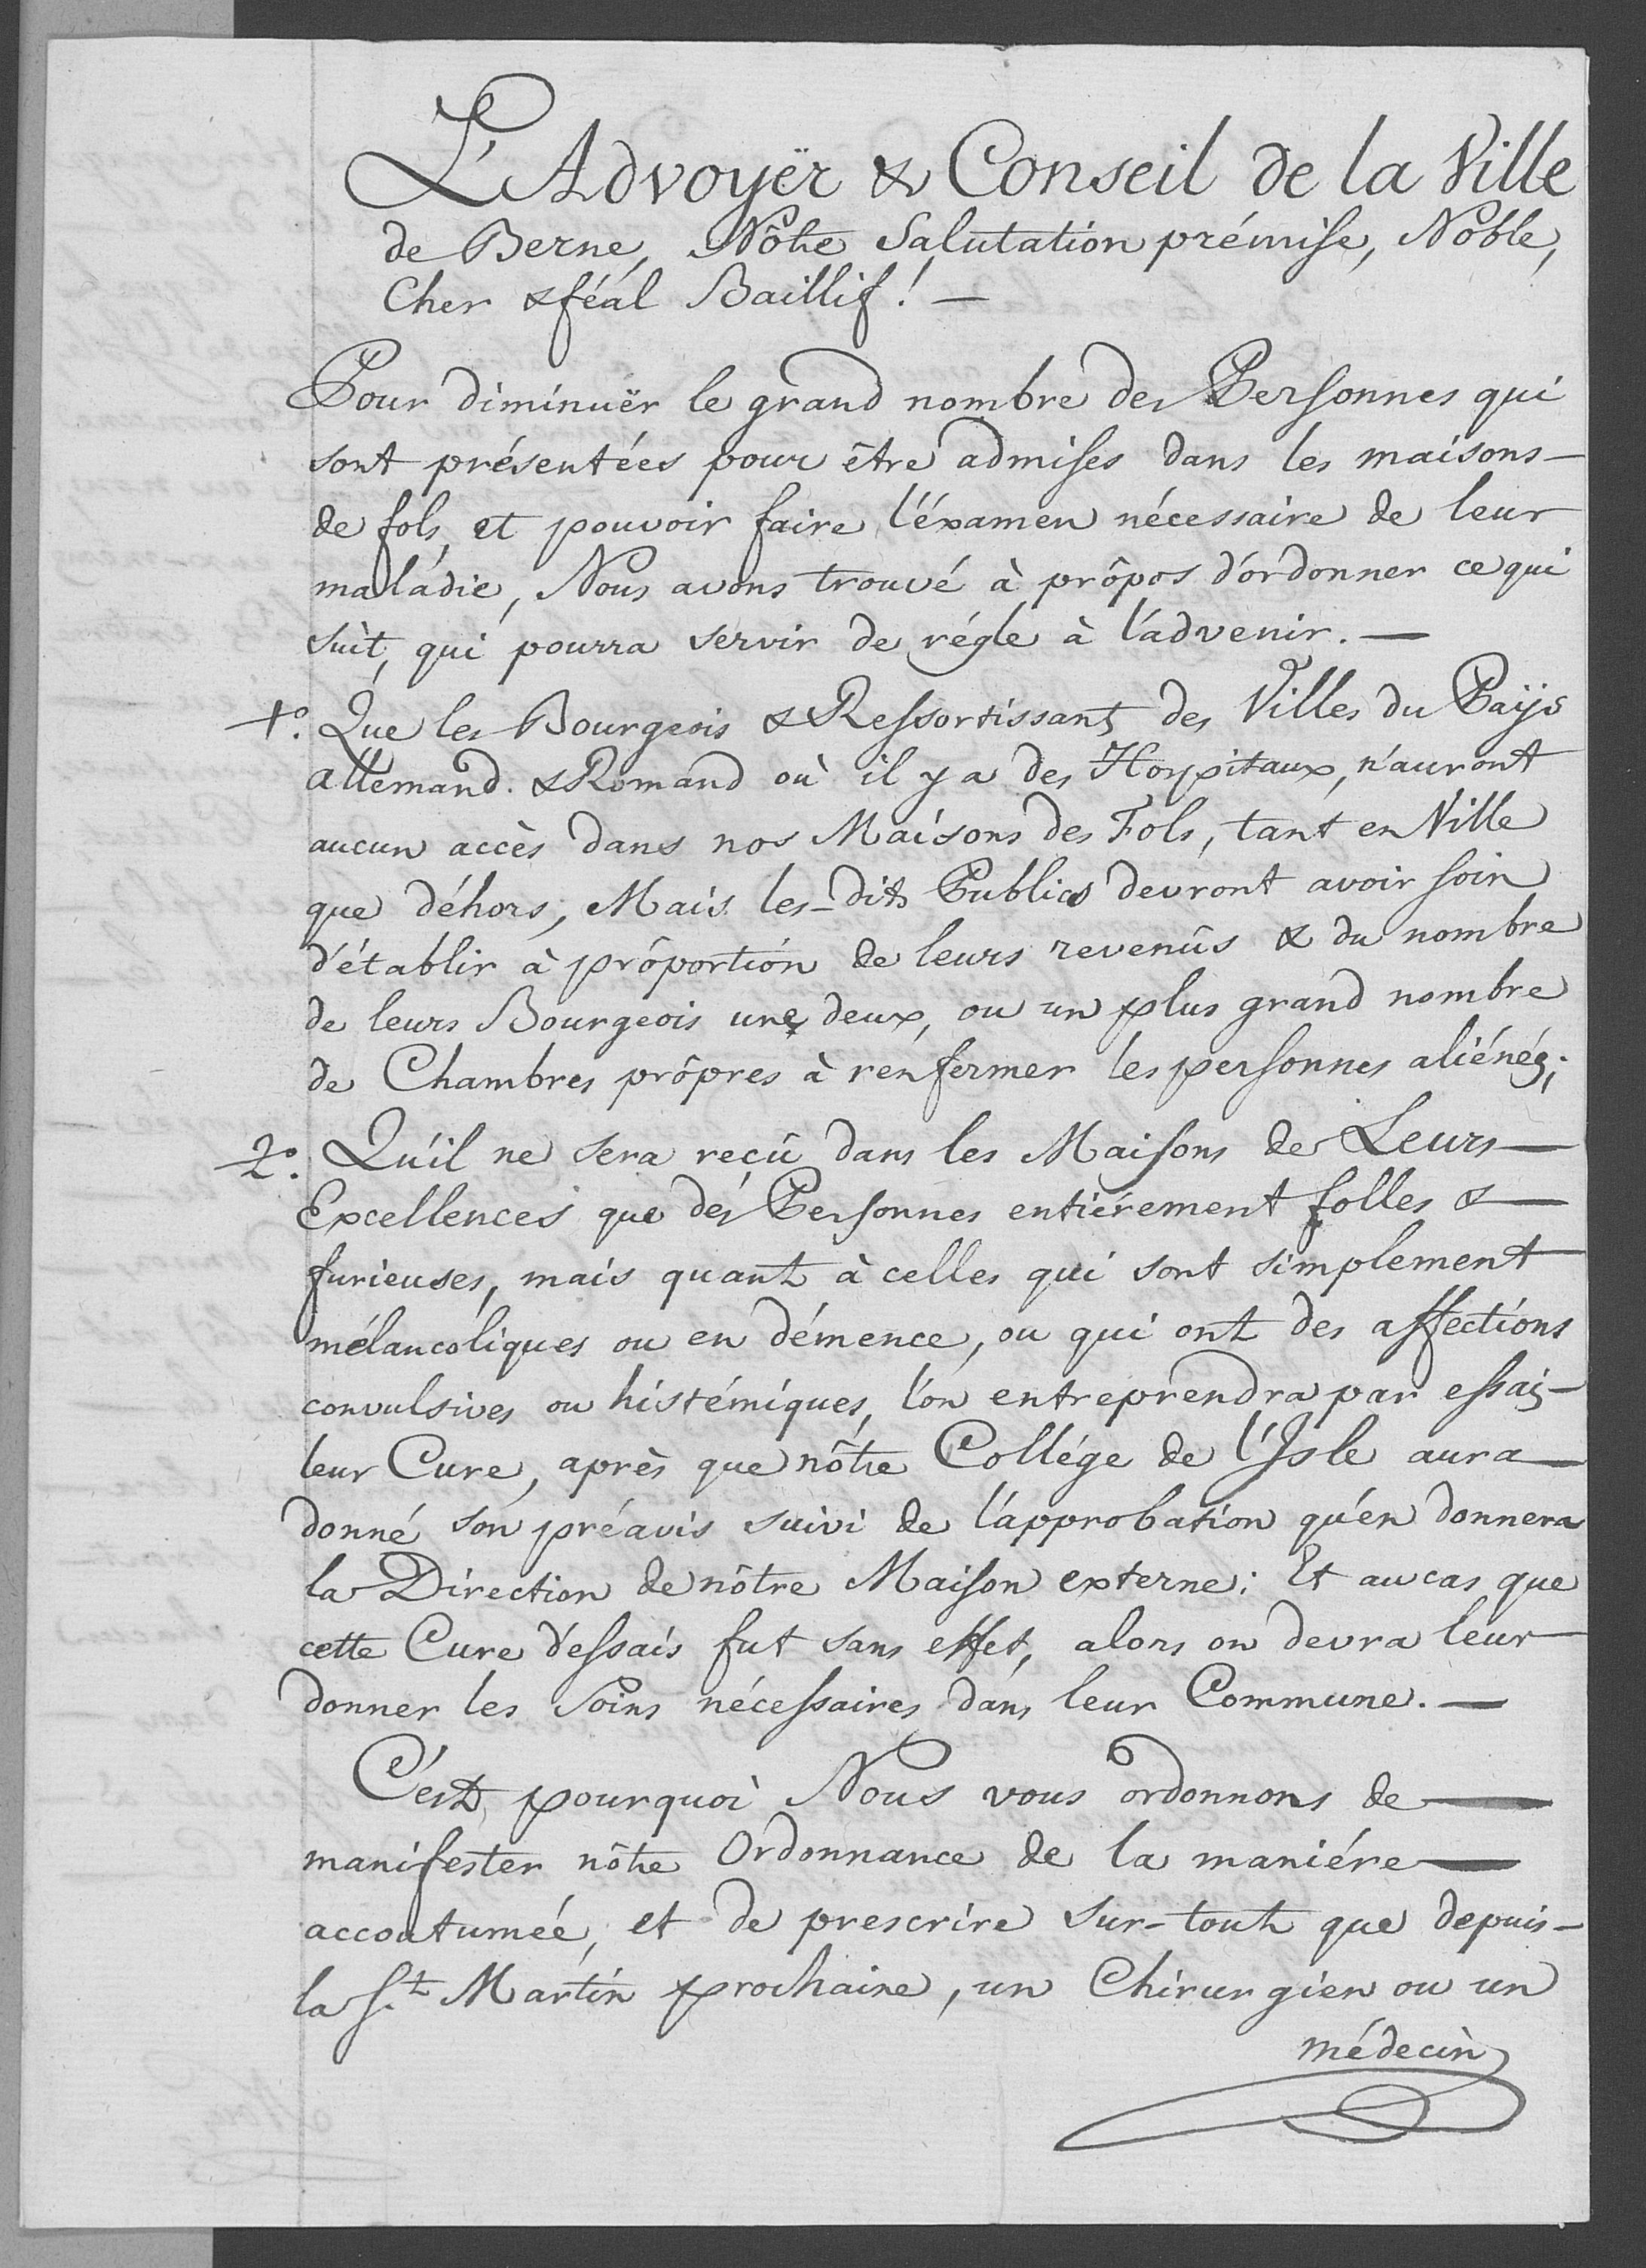 L'Advoyër & Conseil de la Ville
de Berne, Nôtre Salutation prémise, Noble,
Cher & féal Baillif! —
Pour diminuër le grand nombre des Personnes qui
sont présentées pour être admises dans les maisons —
de fols, et pouvoir faire l'éxamen nécessaire de leur
maladie, Nous avons trouvé à prôpos d'ordonner ce qui
suit, qui pourra servir de régle à l'advenir. —
1.° Que les Bourgeois & Ressortissants des Villes du Païs
allemand & Romand où il y a des Hospitaux, n'auront
aucun accès dans nos Maisons des Fols, tant en Ville
que déhors; Mais les-dits Publics devront avoir soin
d'établir à prôportion de leurs revenûs & du nombre
de leurs Bourgeois une, deux, ou un plus grand nombre
de Chambres prôpres à renfermer les personnes aliénées;
2.° Qu'il ne sera reçû dans les Maisons de Leurs —
Excellences que des Personnes entiérement folles & —
furieuses, mais quant à celles qui sont simplement
mélancoliques ou en démence, ou qui ont des affections
convulsives ou histémiques, l'on entreprendra par essais —
leur Cure, après que nôtre Collége de l'Isle aura —
donné son préavis suivi de l'approbation qu'en donnera
la Direction de nôtre Maison externe; Et au cas que
cette Cure d'essais fut sans effet, alors on devra leur
donner les soins nécessaires dans leur Commune. —
C'est pourquoi Nous vous ordonnons de —
manifester nôtre Ordonnance de la maniére —
accoutumée, et de prescrire sur-tout que depuis —
la S.t Martin prochaine, un Chirurgien ou un
médecin